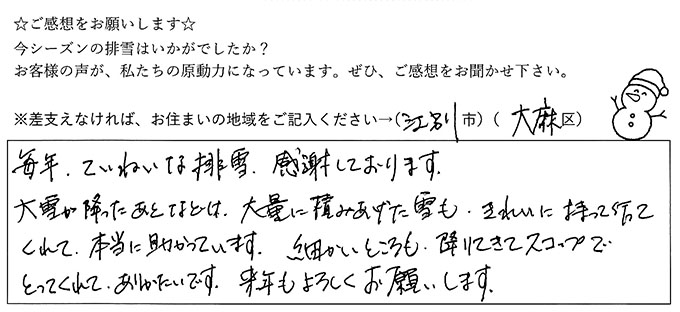 ☆ご感想をお願いします☆
今シーズンの排雪はいかがでしたか？
お客様の声が、私たちの原動力になっています。ぜひ、ご感想をお聞かせ下さい。
※差支えなければ、お住まいの地域をご記入ください→(江別市) (大麻区)
毎年、ていねいな排雪、感謝しております。
大雪が降ったあとなどは、大量に積みあげた雪も、きれいに持って行って
くれて、本当に助かっています。細かいところも、降りてきてスコップで
とってくれて、ありがたいです。来年もよろしくお願いします。